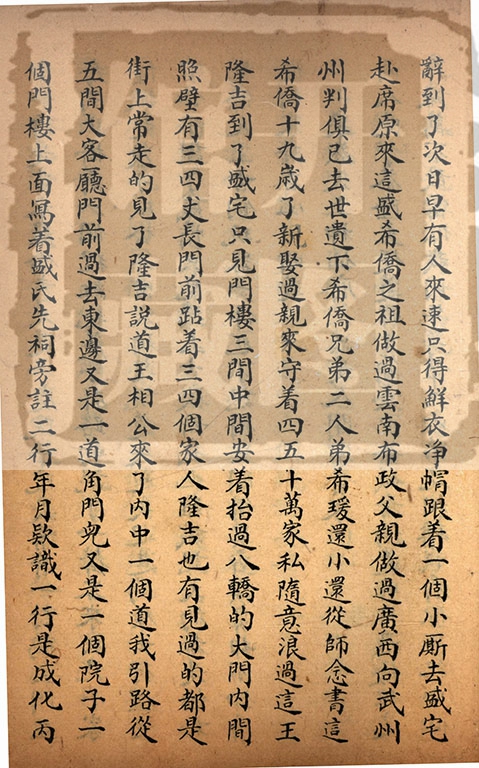 辭到了次日早有人來速只得鮮衣净帽跟着一個小厮去盛宅
赴席原來這盛希僑之祖做過雲南布政父親做過廣西向武州
州判俱已去世遺下希僑兄弟二人弟希瑗還小還從師念書這
希僑十九歲了新娶過親來守着四五十萬家私隨意浪過這王
隆吉到了盛宅只見門樓三間中間安着抬過八轎的大門内間
照壁有三四丈長門前跕着三四個家人隆吉也有見過的都是
街上常走的見了隆吉説道王相公來了内中一個道我引路從
五間大客廳門前過去東邊又是一道角門兒又是一個院子一
個門樓上面寫着盛氏先祠旁註二行年月欵識一行是成化丙